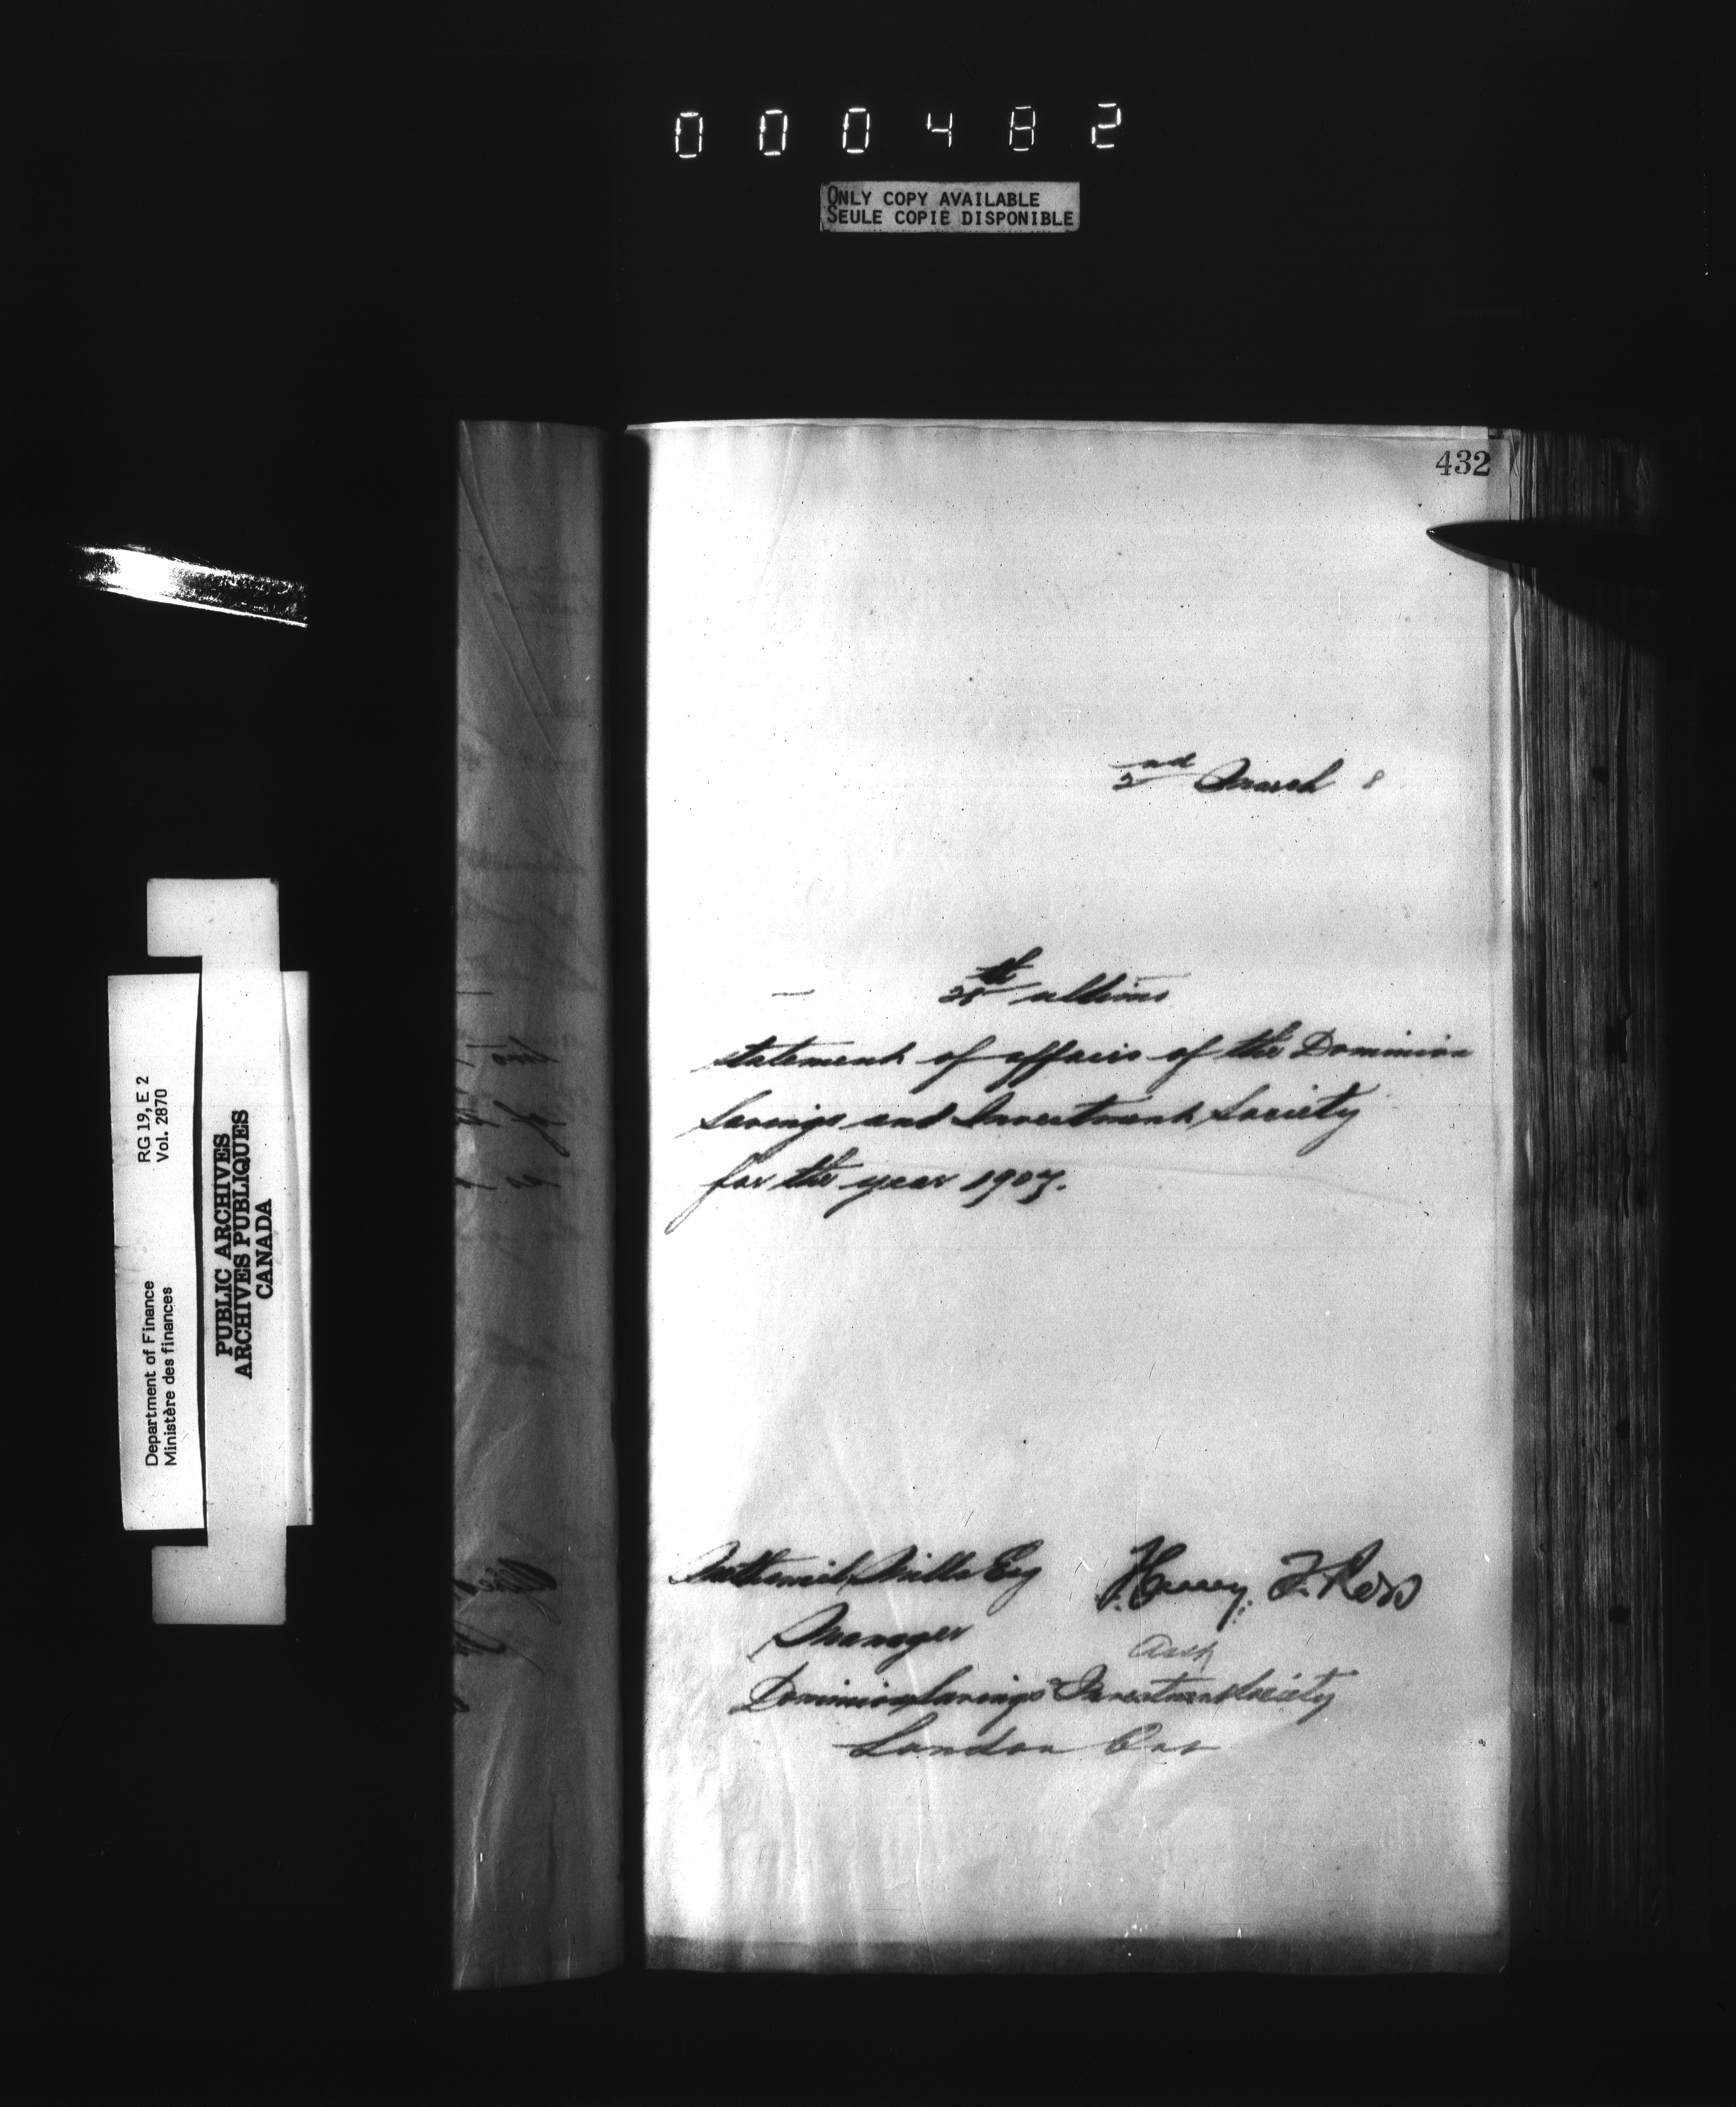 000482
ONLY COPY AVAILABLE
SEULE COPIE DISPONIBLE
432
2nd March 8
28th ultimo
statement of affairs of the Dominion
Savings and Investment Society
for the year 1907.
Nathaniel Mills Esq
Henry T. Ross
Manager
Dominion Savings & Investment Society
London Ont
RG 19, E 2
Vol. 2870
Department of Finance
Ministère des finances
PUBLIC ARCHIVES
ARCHIVES PUBLIQUES
CANADA